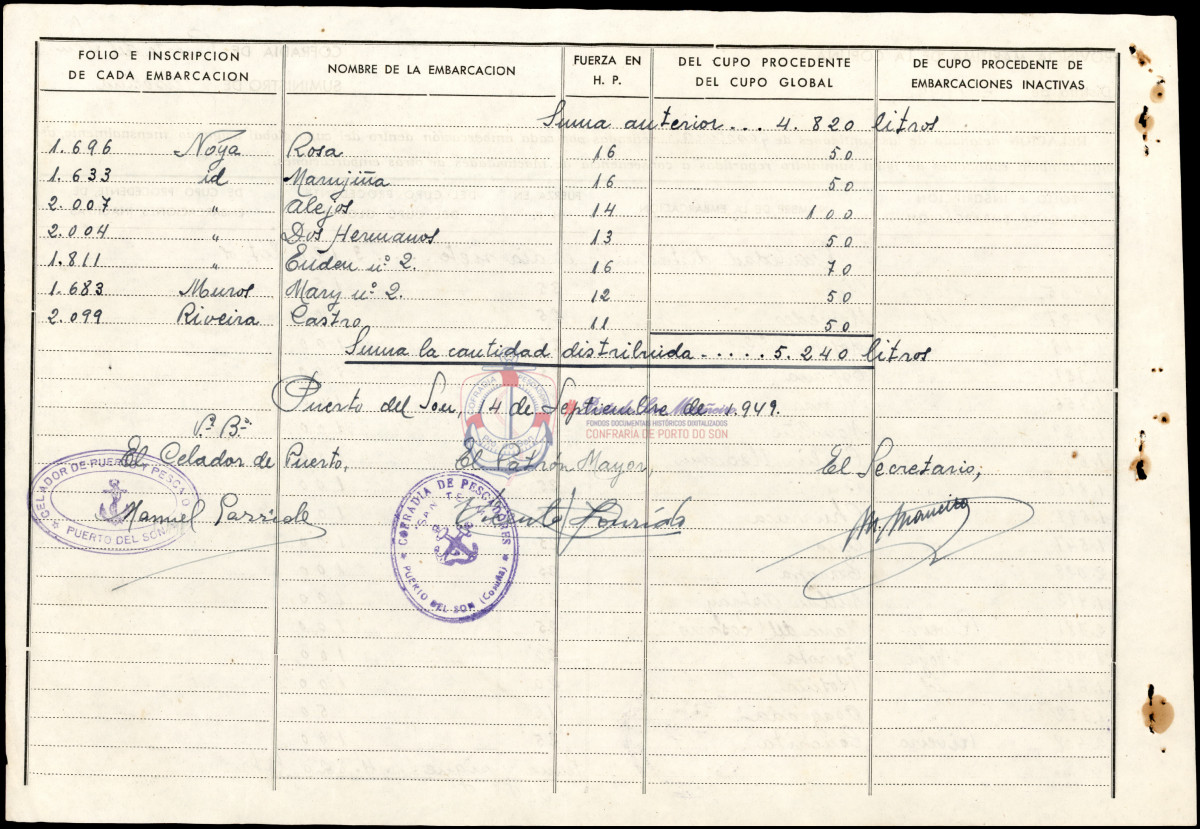 FOLIO E INSCRIPCION DE CADA EMBARCACION NOMBRE DE LA EMBARCACION FUERZA EN H. P. DEL CUPO PROCEDENTE DEL CUPO GLOBAL DE CUPO PROCEDENTE DE EMBARCACIONES INACTIVAS
Suma anterior... 4.820 litros
1.696 Noya Rosa 16 50
1.633 id Marujiña 16 50
2.007 " Alejos 14 100
2.004 " Dos Hermanos 13 50
1.811 " nº 2. 16 70
1.683 Muros Mary nº 2. 12 50
2.099 Riveira Castro 11 50
Suma la cantidad distribuida..... 5.240 litros
Puerto del Son, 14 de Septiembre de 1.949.
FONDOS DOCUMENTAIS HISTÓRICOS DIXITALIZADOS
CONFRARÍA DE PORTO DO SON
Vº Bº
El Celador de Puerto, El Patrón Mayor, El Secretario,
CELADOR DE PUERTO Y PESCA
PUERTO DEL SON
Manuel
COFRADIA DE PESCADORES
PUERTO DEL SON (Coruña)
Vicente